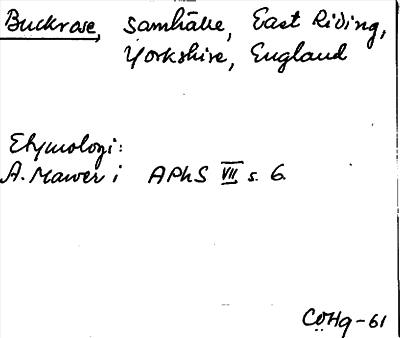 Buckrose, samhälle, East Riding,
Yorkshire, England
Etymologi:
A. Mawer i APhS VII s. 6
CÖHg-61